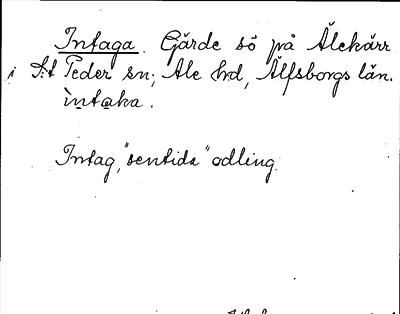 Intaga. Gärde sö på Älekärr
i St Peder sn; Ale hrd, Älfsborgs län.
ìntaka.
Intag, "sentida" odling.